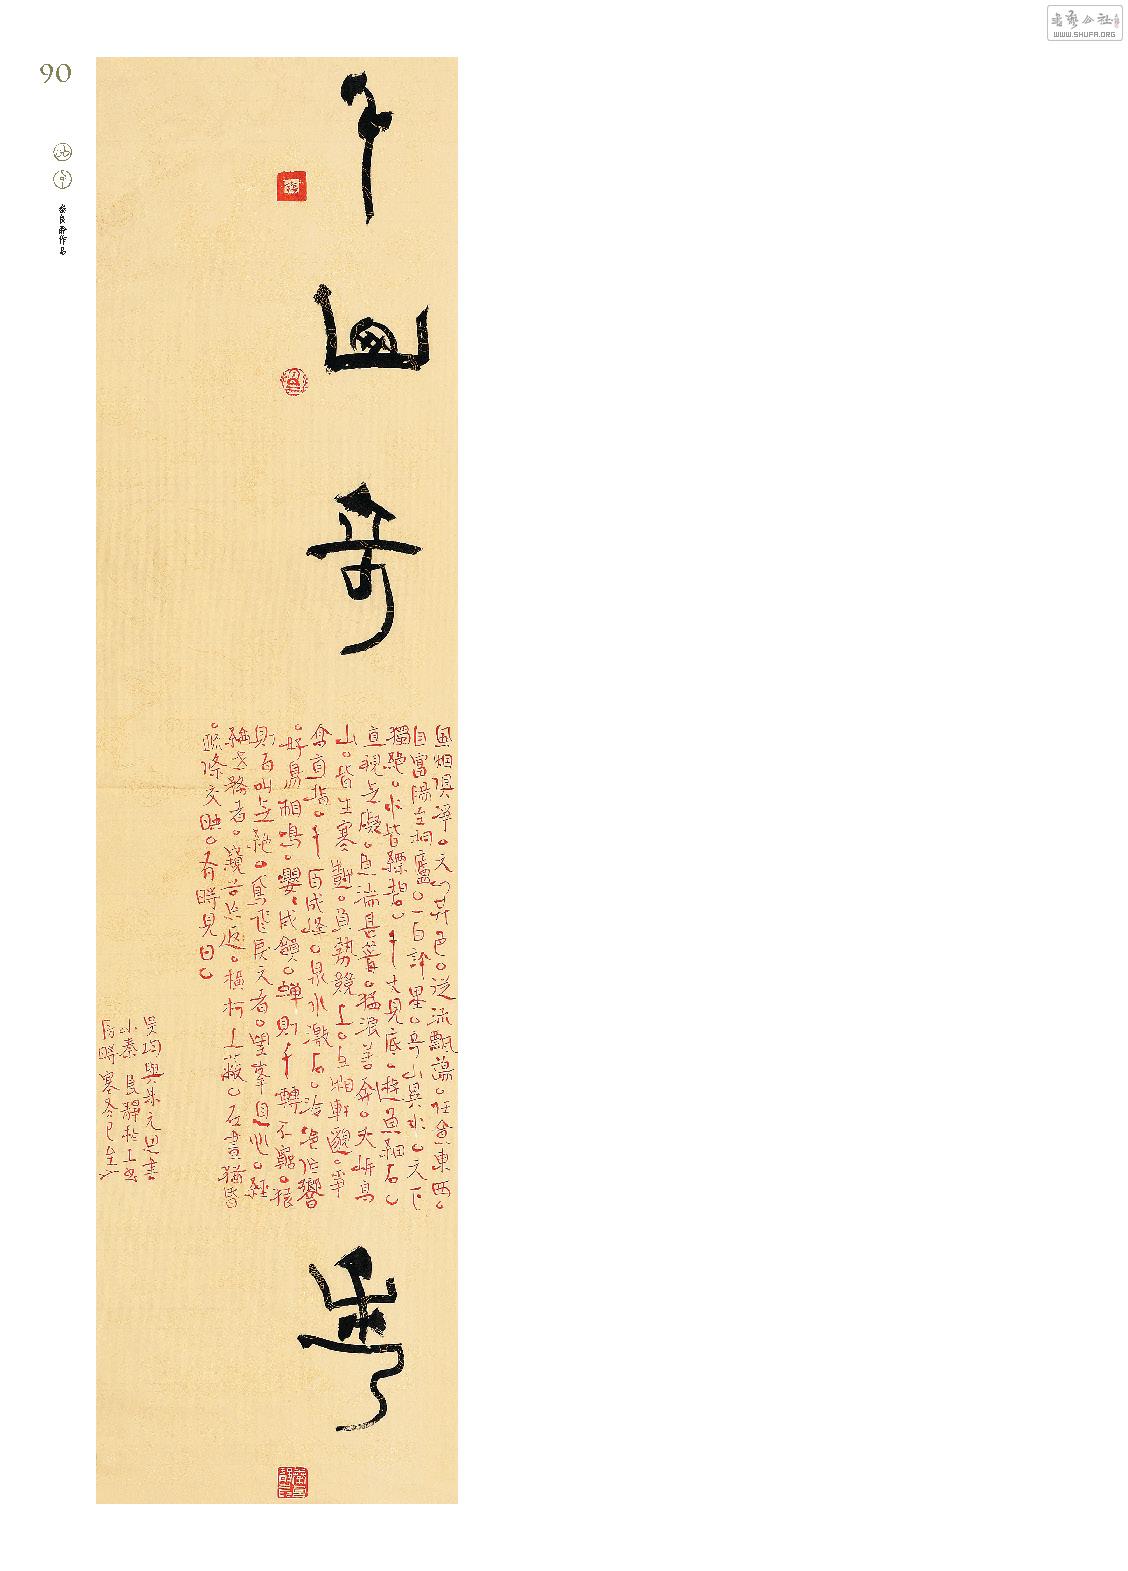 书艺公社
WWW.SHUFA.ORG
90
秦良静作品
奇
風烟俱淨。天山共色。從流飄蕩。任意東西。
自富陽至桐廬。一百許里。奇山異水。天下
獨絶。水皆縹碧。千丈見底。游魚細石。
直視无礙。急湍甚箭。猛浪若奔。夾岸高
山。皆生寒樹。負勢競上。互相軒邈。爭
高直指。千百成峰。泉水激石。泠泠作響
。好鳥相鳴。嚶嚶成韻。蟬則千轉不窮。猿
則百叫无絶。鳶飛戾天者。望峯息心。經
綸世務者。窺谷忘返。橫柯上蔽。在晝猶昏
。疏條交映。有時見日。
吳均與朱元思書
小秦良靜於上
時寒冬